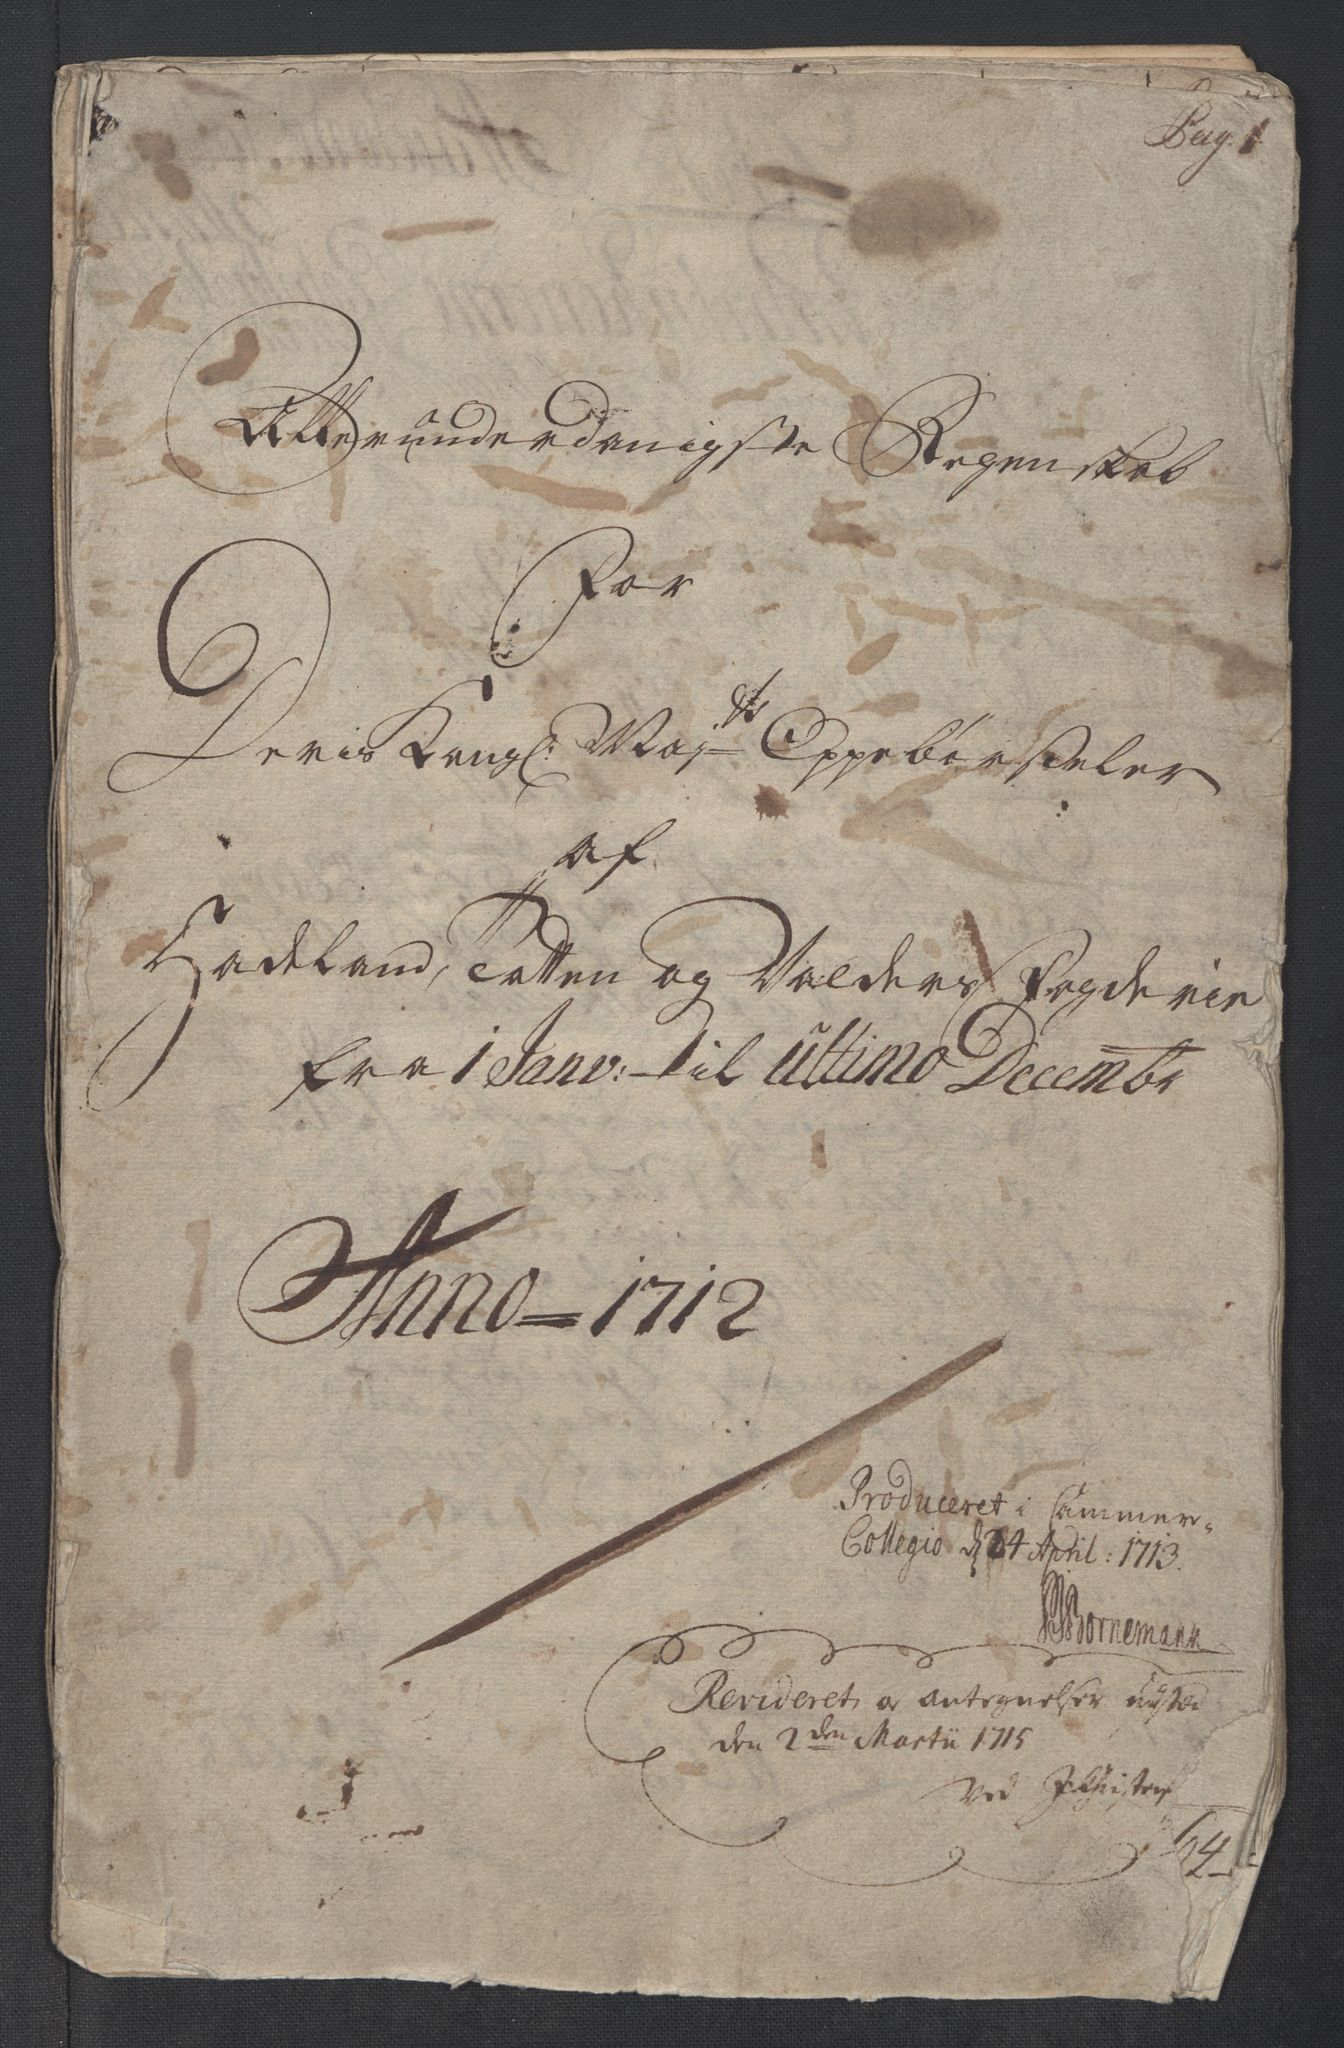 Pag. 1
Allerunderdanigste Regenskab
For
Deris Kongl: Maj.ts Oppebørseler
af
Hadeland, Totten og Valders Fogderie
fra 1 Janv: til ultimo Decembr
Anno = 1712
Produceret i Cammer-
Collegio d 24 April: 1713.
Bornemann
Revideret, og antegnelser
den 2den Martii 1715
Ved